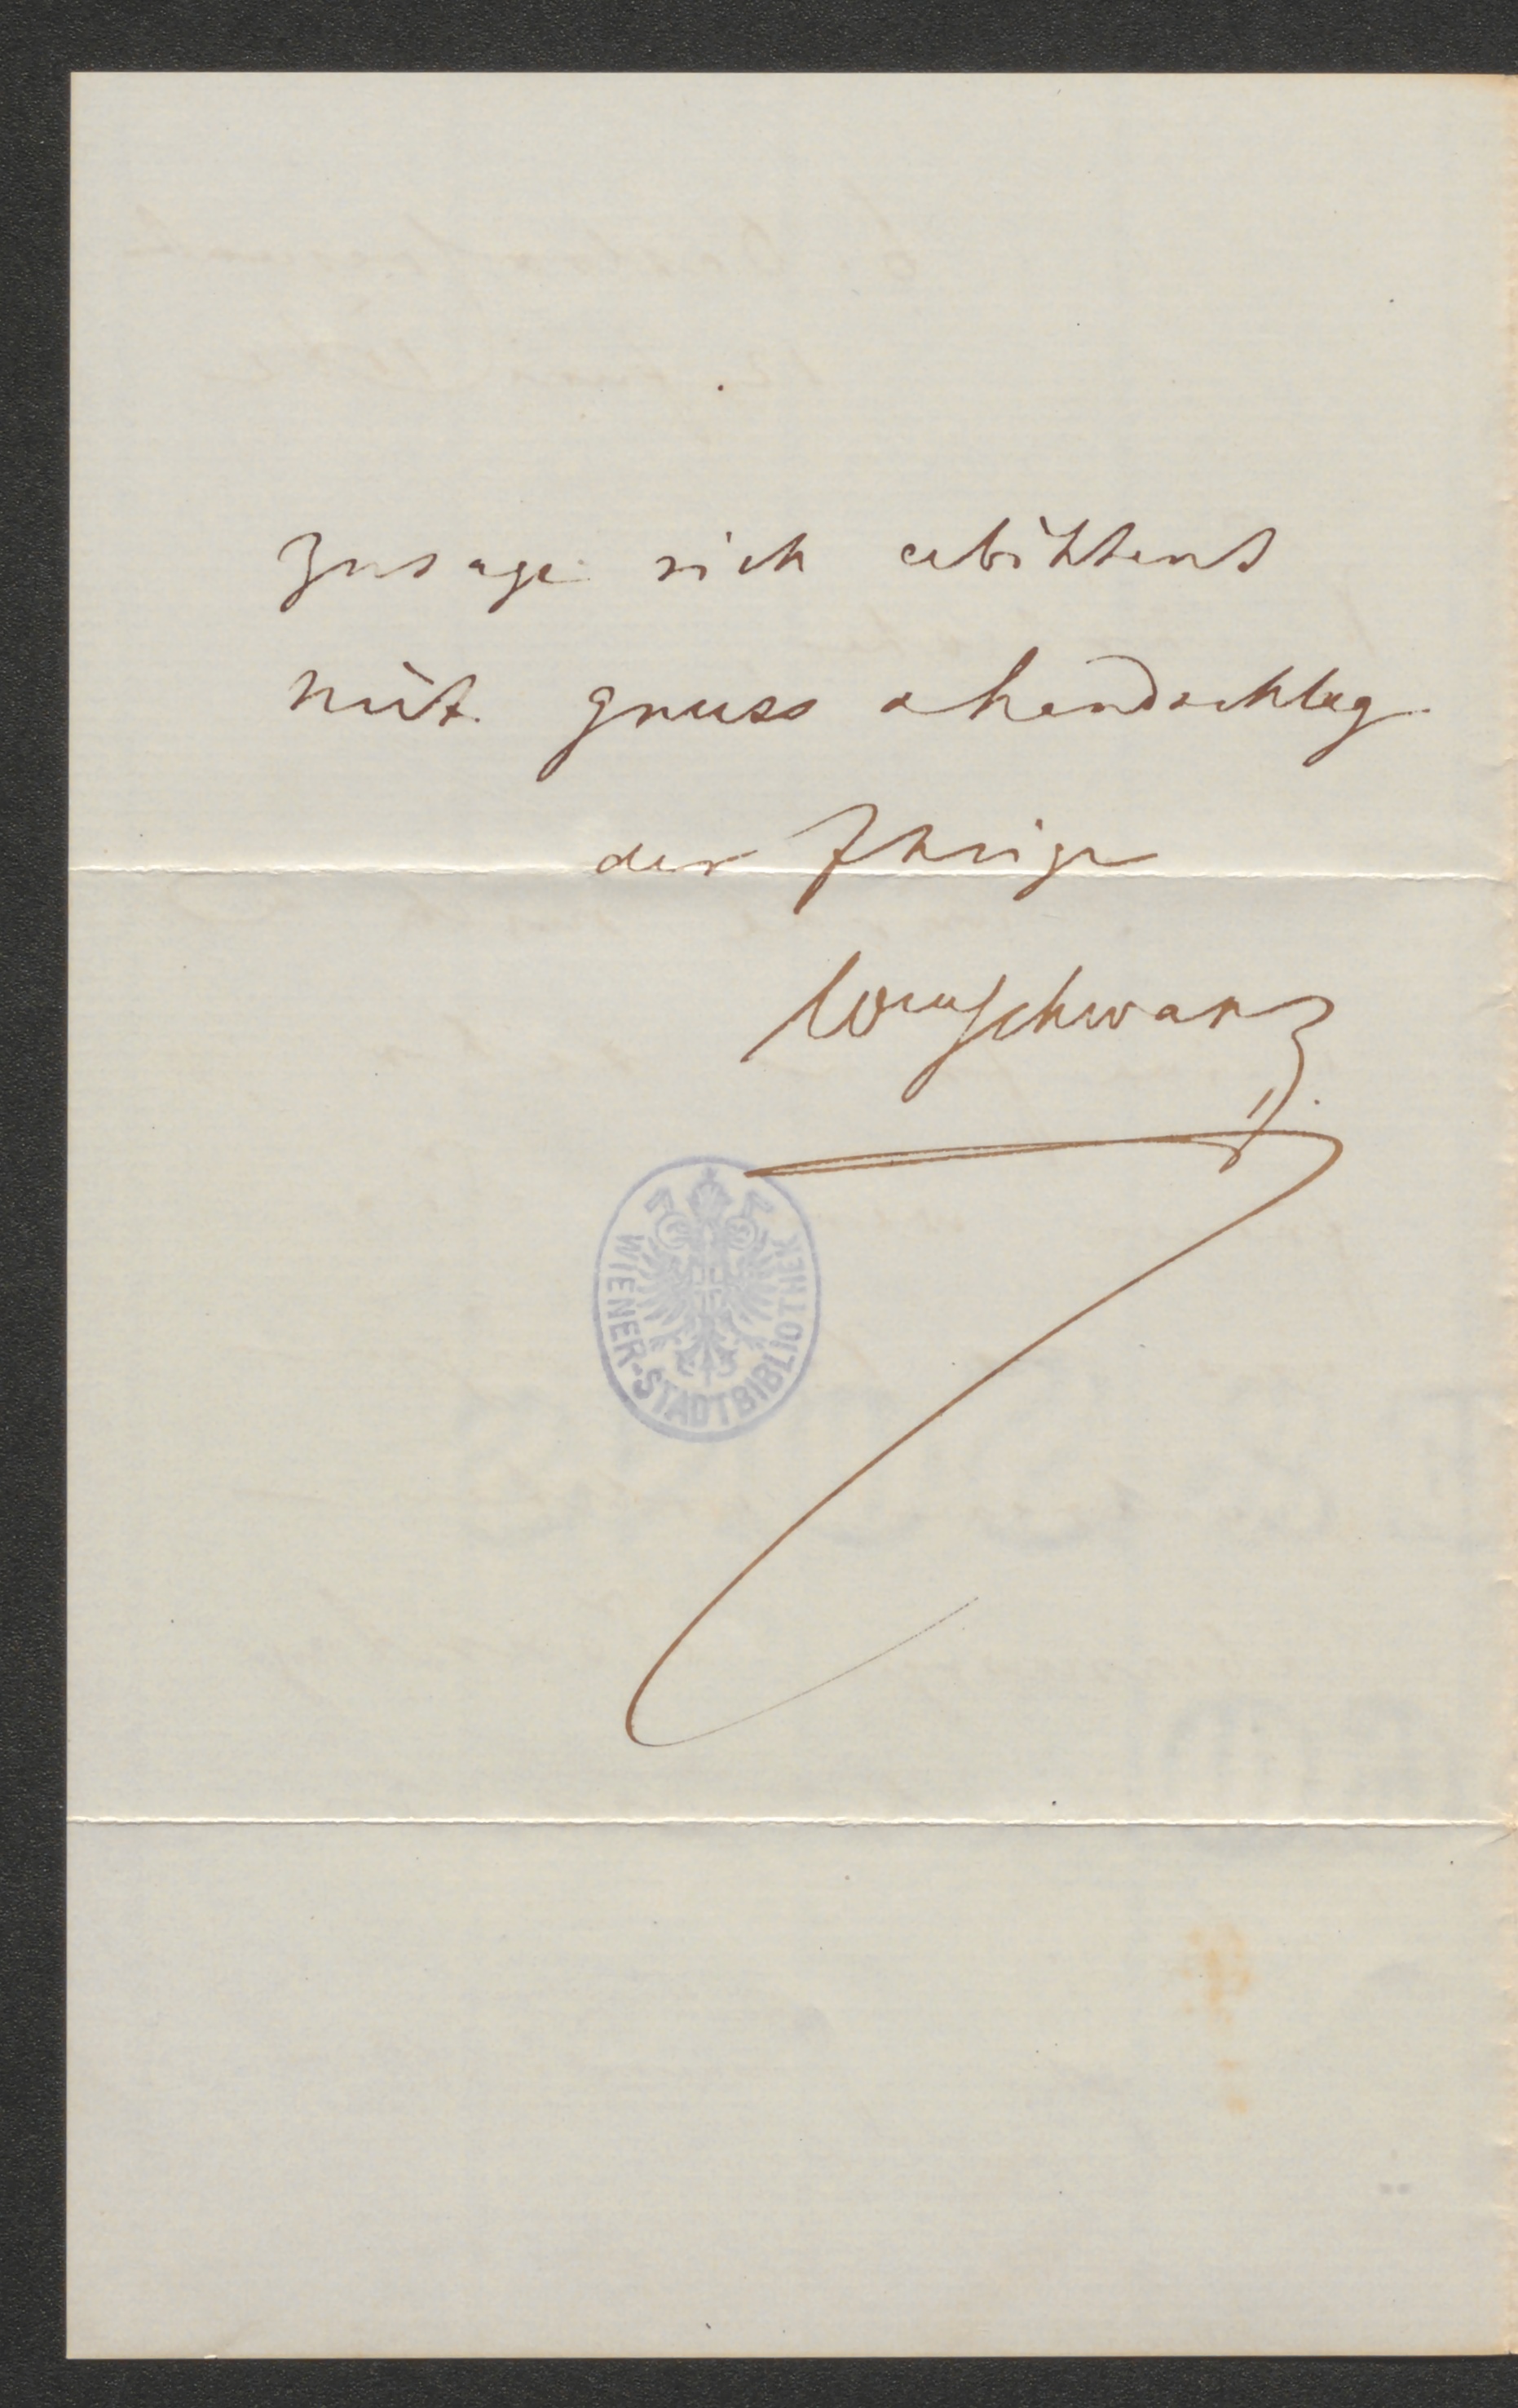 zusage sich erbittend
mit gruss & handschlag
der Ihrige
Schwarz
WIENER-STADTBIBLIOTHEK